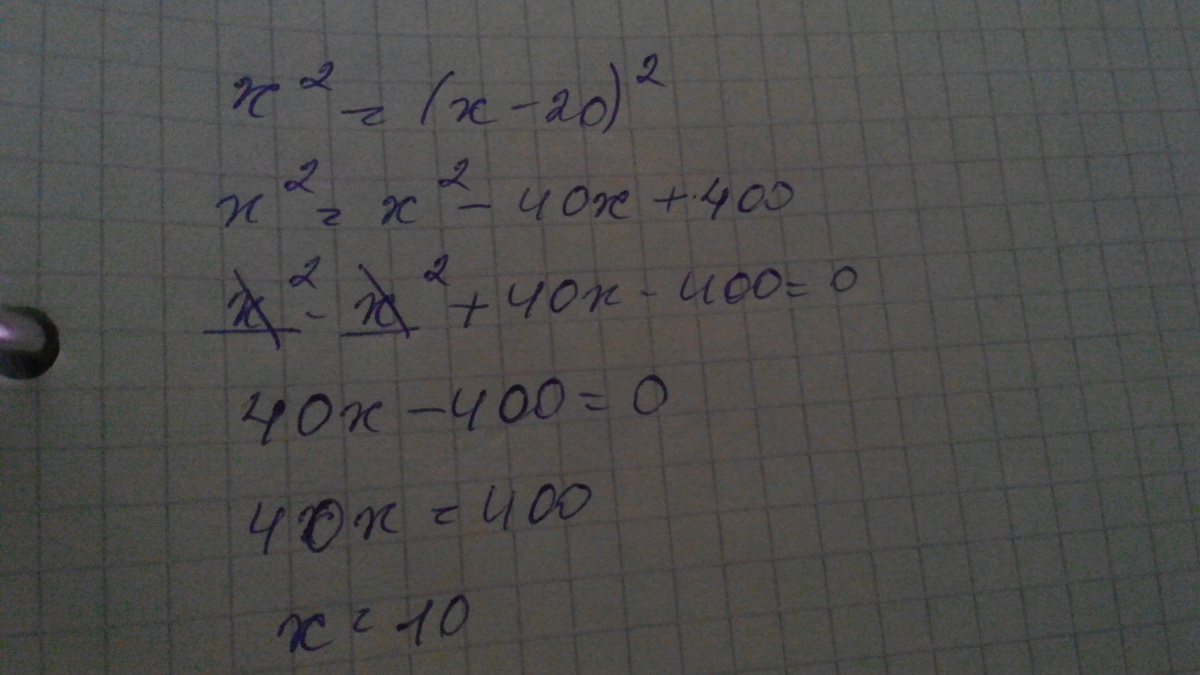 x² = (x - 20)²
x² = x² - 40x + 400
x² - x² + 40x - 400 = 0
40x - 400 = 0
40x = 400
x = 10